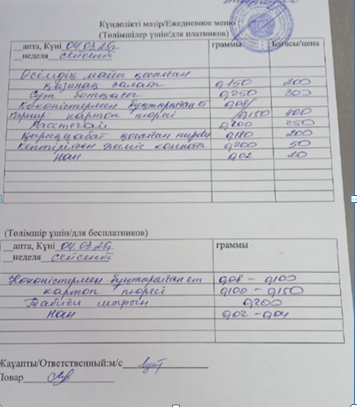 Күнделікті мәзір/Ежедневное меню
(Төлімшілер үшін/для платников)
апта, Күні 04.03.25г граммы Бағасы/цена
неделя сейсенбі
Өсімдік майы қосылған
қызылша салат 0,150 200
Сүт ботқасы 0,250 300
Көкөністермен бұқтырылған ет 0,08/
Гарнир: картоп пюресі 0,150 400
Расстегай 0,200 250
қосылған 0,180 200
Кептірілген жеміс компоты 0,200 50
Нан 0,02 20
(Төлімшір үшін/для бесплатников)
апта, Күні 04.03.25г граммы
неделя сейсенбі
Көкөністермен бұқтырылған ет 0,08 - 0,100
картоп пюресі 0,100 - 0,150
Табиғи шырын 0,200
Нан 0,02 - 0,04
Жауапты/Ответственный:м/с
Повар